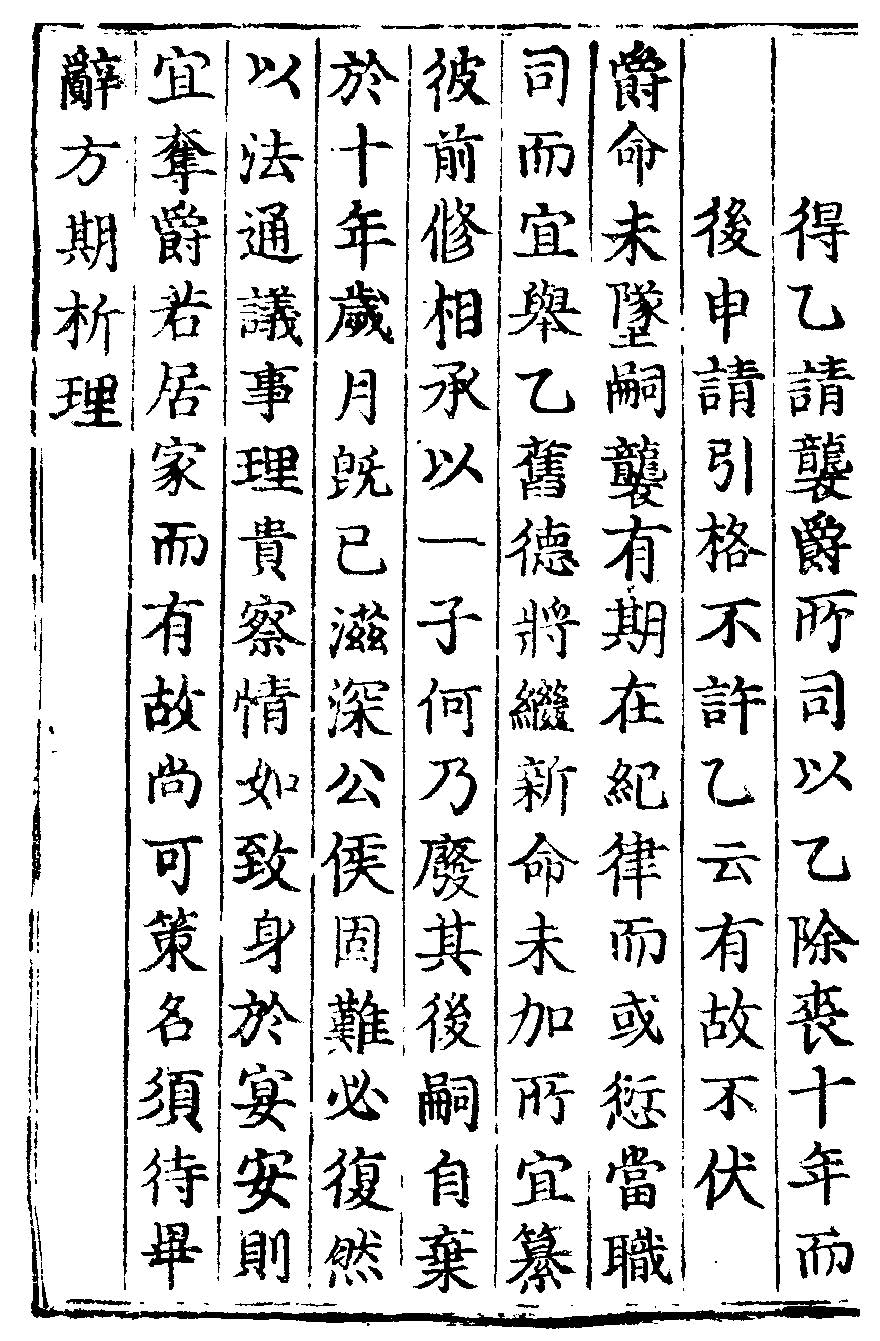 得乙請襲爵所司以乙除喪十年而
後申請引格不許乙云有故不伏
爵命未墜嗣襲有期在紀律而或愆當職
司而宜舉乙舊德將繼新命未加所宜纂
彼前修相承以一子何乃廢其後嗣自棄
於十年歲月旣已滋深公侯固難必復然
以法通議事理貴察情如致身於宴安則
宜奪爵若居家而有故尚可策名須待畢
辭方期析理